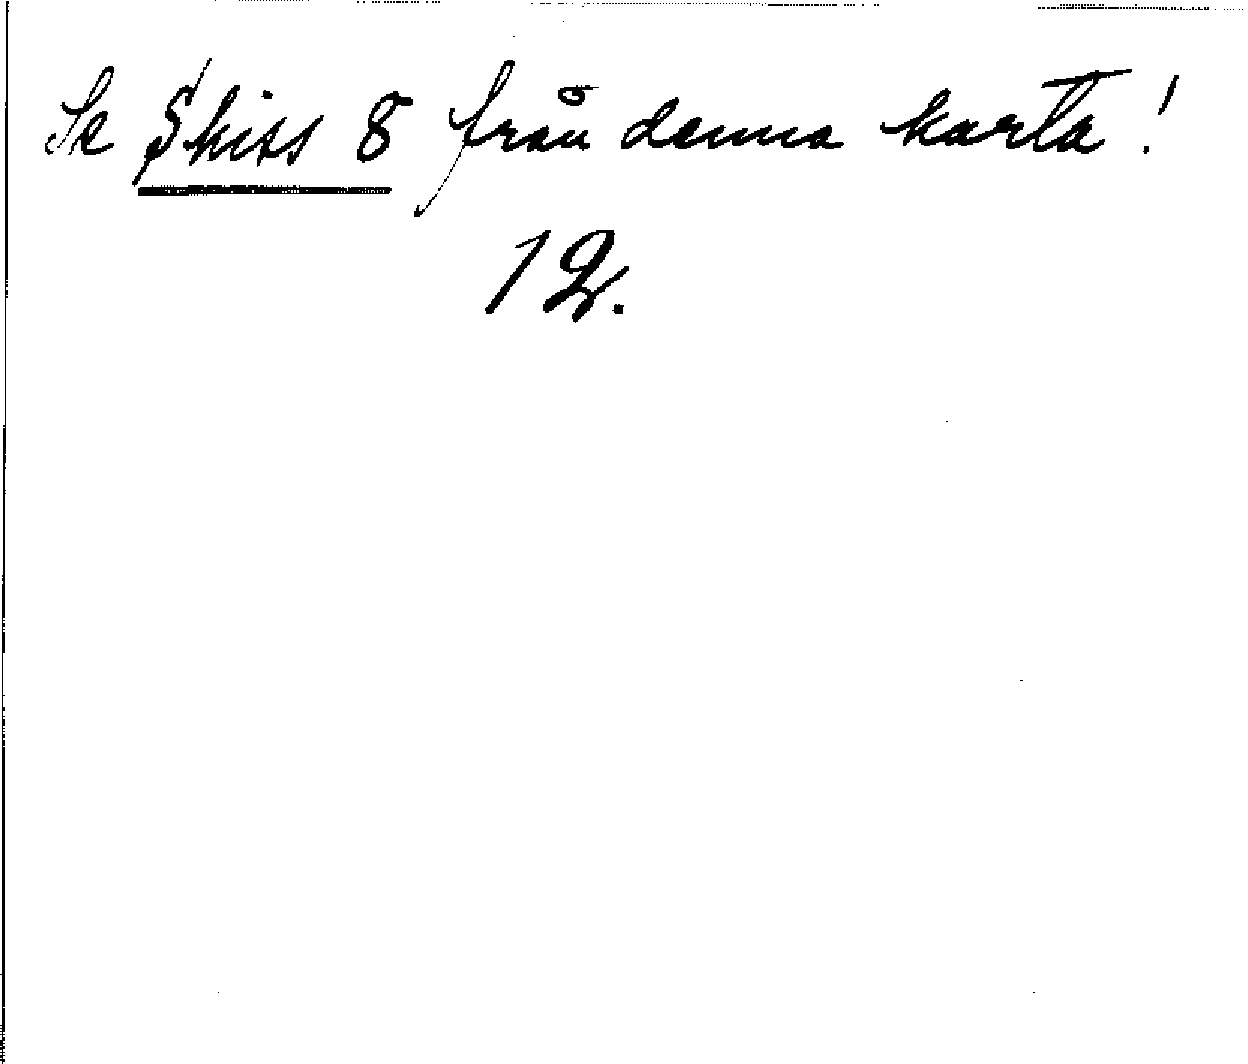 Se Skiss 8 från denna karta!
12.